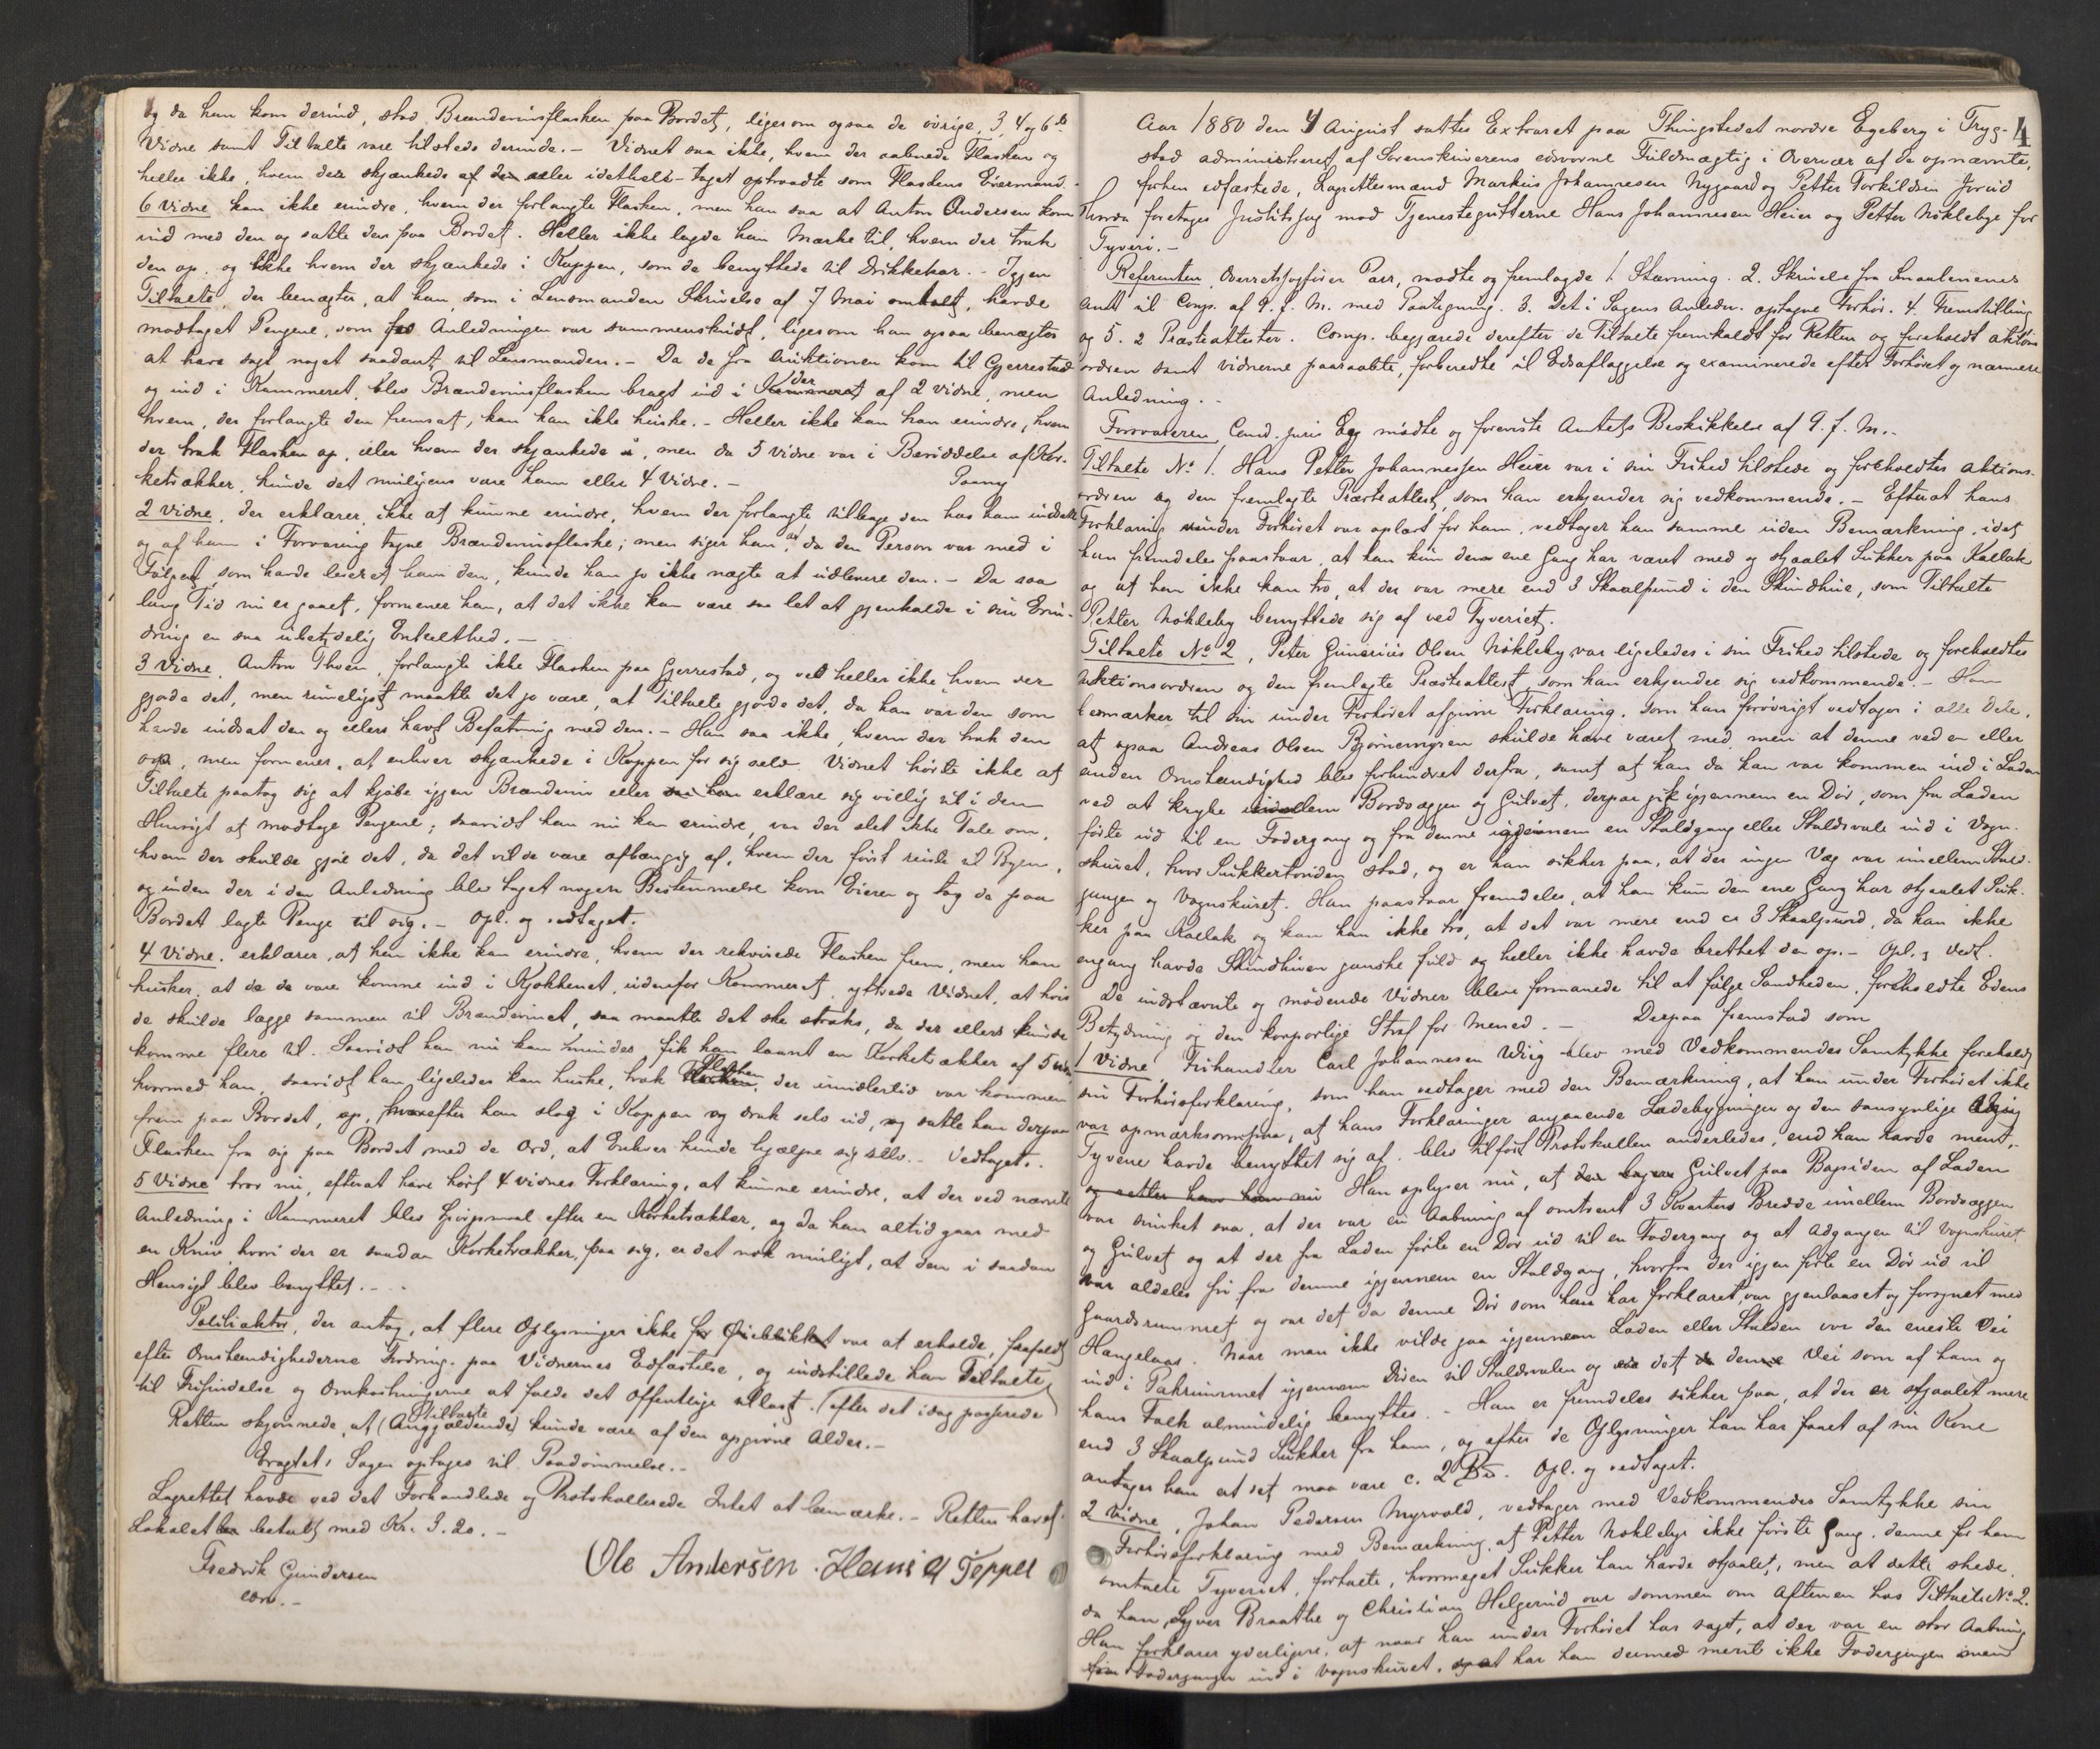 og da han kom derind, stod Brændevinsflasken paa Bordet, ligesom ogsaa de øvrige, 3, 4 og 6te
Vidne samt Tiltalte vare tilstede derinde. – Vidnet saa ikke, hvem der aabnede Flasken og
heller ikke, hvem der skjænkede af den eller idethele taget optraadte som Flaskens Eiermand. –
6 Vidne kan ikke erindre, hvem der forlangte Flasken, men han saa at Anton Andersen kom
ind med den og satte den paa Bordet. Heller ikke lagde han Mærke til, hvem der trak
den op, og ikke hvem der skjænkede i Koppen, som de benyttede til Drikkekar. – Igjen
Tiltalte, der benægter, at han, som i Lensmandens Skrivelse af 7 Mai omtalt, havde
modtaget Pengene, som for Anledningen var sammenskudt, ligesom han ogsaa benægter
at have sagt noget saadant til Lensmanden. – Da de fra Auktionen kom til Gjerrestad
og ind i Kammeret, blev Brændevinsflasken bragt ind i Kammeret der af 2 Vidne, men
hvem, der forlangte den fremsat, kan han ikke huske. – Heller ikke kan han erindre, hvem
der trak Flasken op, eller hvem der skjænkede i, men da 5 Vidne var i Besiddelse af Kor-
ketrækker, kunde det muligens være ham eller 4 Vidne. – Paany
2 Vidne, der erklærer, ikke at kunne erindre, hvem der forlangte tilbage den hos ham indsatte
og af ham i Forvaring tagne Brændevinsflaske; men siger han, at da den Person var med i
Følget, som havde leveret ham den, kunde han jo ikke nægte at udlevere den. – Da saa
lang Tid nu er gaaet, formener han, at det ikke kan være saa let at gjenkalde i sin Erin-
dring en saa ubetydelig Enkelthed. –
3 Vidne, Anton Thoen, forlangte ikke Flasken paa Gjerrestad, og ved heller ikke, hvem der
gjorde det, men rimeligst maatte det jo være, at Tiltalte gjorde det, da han var den som
havde indsat den og ellers havt Befatning med den. – Han saa ikke, hvem der trak den
op, men formener, at enhver skjænkede i Koppen for sig selv. Vidnet hørte ikke at
Tiltalte paatog sig at kjøbe igjen Brændevin eller erklære sig villig til i den
Hensigt at modtage Pengene; saavidt han nu kan erindre, var der slet ikke Tale om,
hvem der skulde gjøre det, da det vilde være afhængig af, hvem der først reiste til Byen,
og inden der i den Anledning blev taget nogen Bestemmelse kom Eieren og tog de paa
Bordet lagte Penge til sig. – Opl. og vedtaget.
4 Vidne, erklærer, at han ikke kan erindre, hvem der rekvirede Flasken frem, men han
husker, at da de vare komne ind i Kjøkkenet, udenfor Kammeret, yttrede Vidnet, at hvis
de skulde lægge sammen til Brændevinet, saa maatte det ske straks, da der ellers kunde
komme flere til. Saavidt han nu kan mindes fik han laant en Korketrækker af 5 Vidne
hvormed han, saavidt han ligeledes kan huske, trak Flasken, der imidlertid var kommen
frem paa Bordet, op, hvorefter han slog i Koppen og drak selv ud, og satte han derpaa
Flasken fra sig paa Bordet med de Ord, at Enhver kunde hjælpe sig selv. – Vedtaget. –
5 Vidne tror nu, efterat have hørt 4 Vidnes Forklaring, at kunne erindre, at der ved nævnte
Anledning i Kammeret blev spørgsmaal efter en Korketrækker, og da han altid gaar med
en Kniv, hvori der er saadan Korketrækker, paa sig, er det nok muligt, at den i saadan
Hensigt blev benyttet. –
Politiaktor, der antog, at flere Oplysninger ikke for Øieblikket var at erholde, frafaldt
efter Omstændighederne Fordring paa Vidnernes Edfæstelse, og indstillede han Tiltalte
til Frifindelse og Omkostningerne at falde det Offentlige tillast. (efter det idag passerede
Retten skjønnede, at Tiltalte (Angjældende) kunde være af den opgivne Alder. –
Eragtet: Sagen optages til Paadømmelse. –
Lagrettet havde ved det Forhandlede og Protokollerede Intet at bemærke. – Retten hævet.
Lokalet betalt med Kr. 3.20. –
Fredrik Gundersen
con. –
Ole Andersen. Hans A Toppel
4
Aar 1880 den 4 August sattes Extraret paa Thingstedet nordre Egeberg i Tryg-
stad administreret af Sorenskriverens edsvorne Fuldmægtig i Overvær af de opnævnte,
forhen edfæstede, Lagrettesmænd Markus Johannesen Nygaard og Petter Torkildsen Jorud
Hvorda foretages Justitssag mod Tjenestegutterne Hans Johannesen Heier og Petter Nøkleby for
Tyveri. –
Referenten, Overretssagfører Paer, mødte og fremlagde 1 Stævning. 2. Skrivelse fra Smaalenenes
Amt til Comp. af 9. f. M. med Paategning. 3. Det i Sagens Anledn. optagne Forhør. 4. Fremstilling
og 5. 2 Præsteattester. Comp. begjærede derefter de Tiltalte fremkaldt for Retten og foreholdt aktions-
ordren samt Vidnerne paaraabte, forberedte til Edsaflæggelse og examinerede efter Forhøret og nærmere
Anledning. –
Forsvareren, Cand. juris Eeg mødte og foreviste Amtets Beskikkelse af 9. f. M. –
Tiltalte No 1. Hans Petter Johannessen Heier var i sin Frihed tilstede og foreholdtes aktions-
ordren og den fremlagte Præsteattest, som han erkjender sig vedkommende. – Efterat hans
Forklaring under Forhøret var oplæst for ham, vedtager han samme uden Bemærkning, idet
han fremdeles paastaar, at han kun den ene Gang har været med og stjaalet Sukker paa Kallak
og at han ikke kan tro, at der var mere end 3 Skaalpund i den Skindhue, som Tiltalte
Petter Nøkleby benyttede sig af ved Tyveriet.
Tiltalte No 2, Peter Gunerius Olsen Nøkleby var ligeledes i sin Frihed tilstede og foreholdtes
Aktionsordren og den fremlagte Præsteattest som han erkjender sig vedkommende. – Han
bemærker til sin under Forhøret afgivne Forklaring, som han forøvrigt vedtager i alle Dele,
at ogsaa Andreas Olsen Bjørnemyren skulde have været med, men at denne ved en eller
anden Omstændighed blev forhindret derfra, samt at han da han var kommen ind i Laden
ved at krybe imellem Bordvæggen og Gulvet, derpaa gik igjennem en Dør, som fra Laden
førte ud til en Fodergang og fra denne igjennem en Staldgang eller Staldsvale ind i Vogn-
skuret, hvor Sukkertønden stod, og er han sikker paa, at der ingen Væg var imellem Stald-
gangen og Vognskuret. Han paastaar fremdeles, at han kun den ene Gang har stjaalet Suk-
ker paa Kallak og kan han ikke tro, at det var mere end ca 3 Skaalpund, da han ikke
engang havde Skindhuen ganske fuld og heller ikke havde brettet den op. – Opl. & Vedt.
De indstævnte og mødende Vidner bleve formanede til at følge Sandheden, foreholdte Edens
Betydning og den korporlige Straf for Mened. – Derpaa fremstod som
1 Vidne, Frihandler Carl Johannesen Wiig blev med Vedkommendes Samtykke foreholdt
sin Forhørsforklaring, som han vedtager med den Bemærkning, at han under Forhøret ikke
var opmærksom paa, at hans Forklaringer angaaende Ladebygningen og den sansynlige Adgang
Tyvene havde benyttet sig af, blev tilført Protokollen anderledes, end han havde ment. –
Han oplyser nu, at Gulvet paa Bagsiden af Laden
var sunket saa, at der var en Aabning af omtrent 3 Kvarters Bredde imellem Bordvæggen
og Gulvet og at der fra Laden førte en Dør ud til en Fodergang og at Adgangen til Vognskuret
var aldeles fri fra denne igjennem en Staldgang, hvorfra der igjen førte en Dør ud til
Gaardsrummet og var det da denne Dør som han har forklaret, var gjenlaaset og forsynet med
Hængelaas. Naar man ikke vilde gaa igjennem Laden eller Stalden var den eneste Vei
ind i Pakrummet igjennem Døren til Staldsvalen og det denne Vei som af ham og
hans Folk almindelig benyttes. – Han er fremdeles sikker paa, at der er stjaalet mere
end 3 Skaalpund Sukker fra ham, og efter de Oplysninger han har faaet af sin Kone
antager han at det maa være c. 2 Bd. Opl. og vedtaget.
2 Vidne, Johan Pedersen Myrvold, vedtager med Vedkommendes Samtykke sin
Forhørsforklaring med Bemærkning, at Petter Nøkleby ikke første Gang, denne for ham
omtalte Tyveriet, fortalte, hvormeget Sukker han havde stjaalet, men at dette skede,
da han, Syver Braathe og Christian Helgerud var sammen om Aftenen hos Tiltalte No 2.
Han forklarer yderligere, at naar han under Forhøret har sagt, at der var en stor Aabning
fra Fodergangen ind i Vognskuret, har han dermed ment ikke Fodergangen men